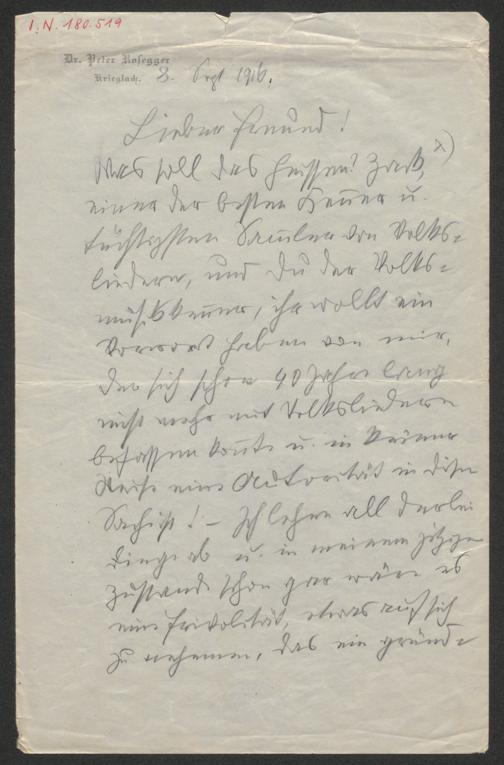 I. N. 180.519
Dr. Peter Rosegger
Krieglach. 8. Sept 1916.
Lieber Freund!
Was soll das heissen? Zack, x)
einer der besten Kenner u.
tüchtigsten Samler von Volks=
liedern, und Du der Volks=
musikkenner, ihr wollt ein
Vorwort haben von mir,
der sich schon 40 Jahre lang
nicht mehr mit Volksliedern
befassen konte u. in keiner
Weise eine Autorität in dieser
Sache ist! – Ich lehne all derlei
Dinge ab u. in meinem jetzigen
Zustande schon gar wäre es
eine Frivolität, etwas auf sich
zu nehmen, das ein gründ=